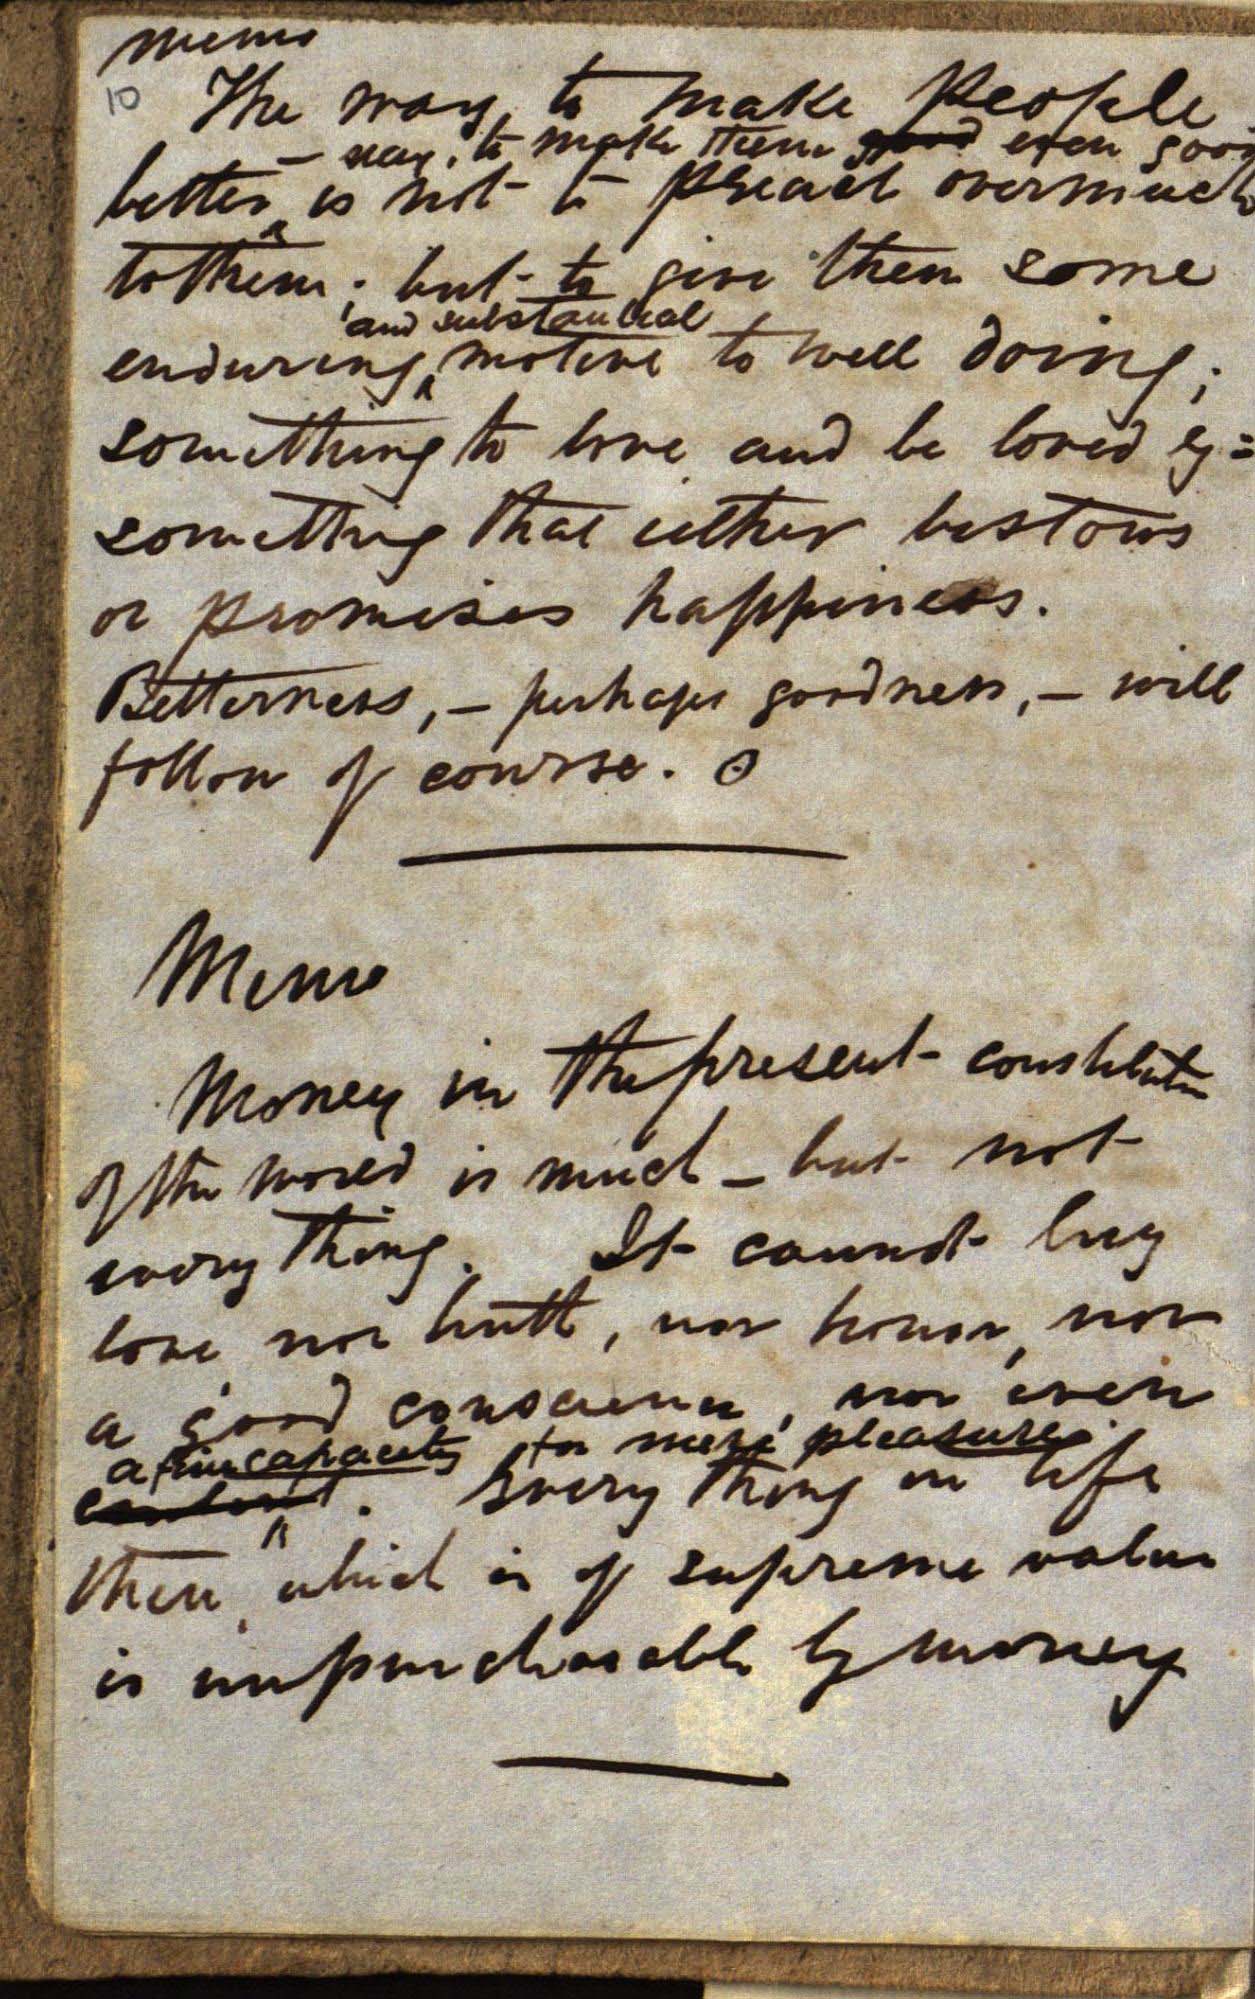 Memo
10
The way, to make People
– nay, to make them good even good
better is not to preach overmuch
to them; but to give them some
and substantial
enduring motive to well doing;
something to love and be loved by =
something that either bestows
or promises happiness.
Betterness, – perhaps goodness, – will
follow of course.
Memo
Money in the present constitution
of the world is much – but not
every thing. It cannot buy
love nor truth, nor honor, nor
a good conscience, nor even
a capacity for mere pleasure
content. Every thing in life
then, which is of supreme value
is unpurchasable by money